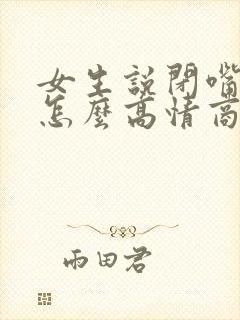 女生說閉嘴
怎麼高情商
雨田君